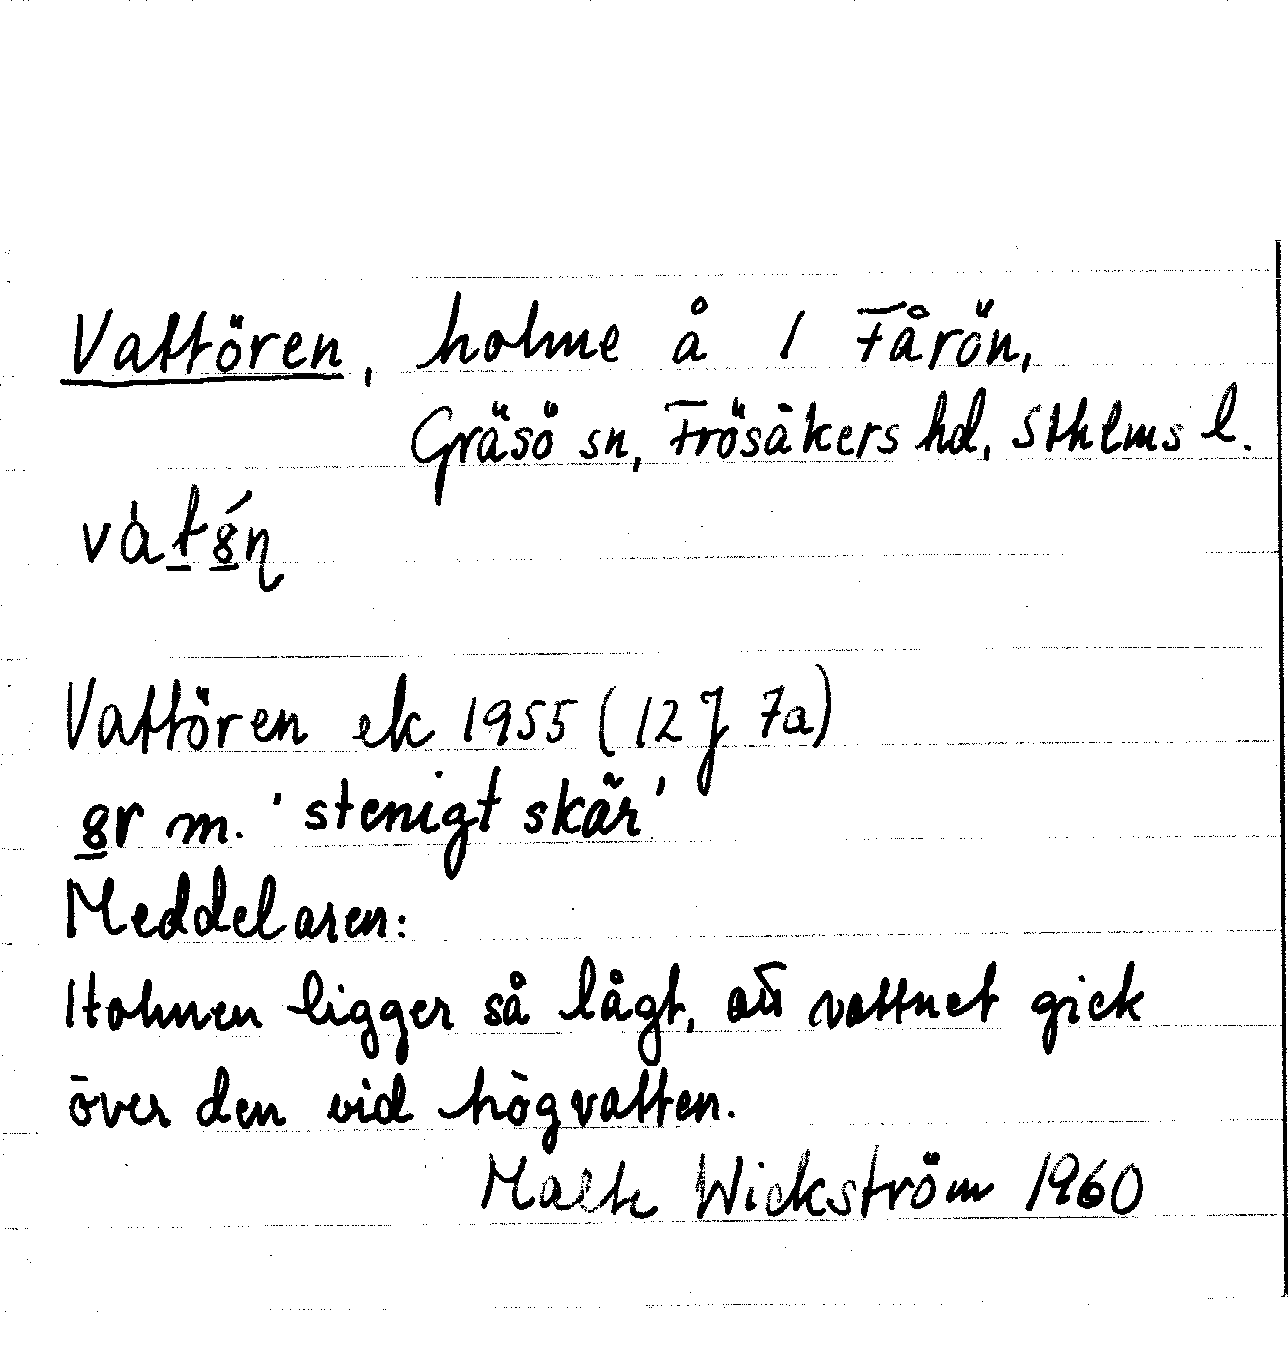 Vattören, holme å 1 Fårön,
Gräsö sn, Frösåkers hd, Sthlms l.
Vattören ek 1955 (12 J 7a)
8r m. 'stenigt skär'
Meddelaren:
Holmen ligger så lågt, att vattnet gick
över den vid högvatten.
Wickström 1960